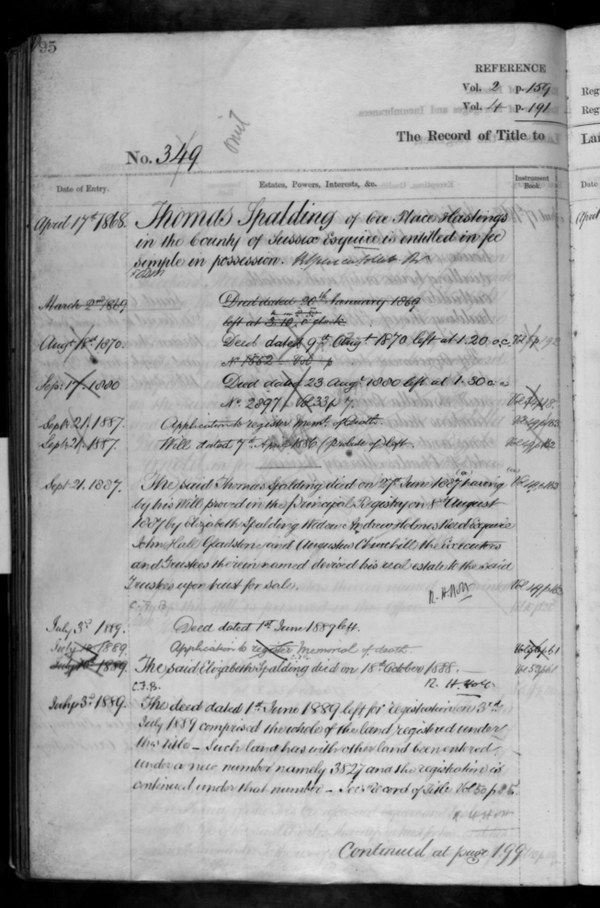 95
REFERENCE
Vol. 2 p. 159
Vol. 4 p. 191
The Record of Title to
No. 349
omit
Date of Entry.
Estates, Powers, Interests, &c.
Instrument Book.
April 17th 1868. Thomas Spalding of Ore Place Hastings
in the County of Sussex Esquire is entitled in fee
simple in possession.
March 2nd 1869 Deed dated 20th January 1869
left at
Augt 18th 1870. Deed dated 9th Augt 1870 left at 1.20 o.c.
No 1552 Vol p
Sept 17 1880 Deed dated 23 Augt 1880 left at 1.30 o.c
No. 2897 Vol 33 p 7.
Sept 21. 1887. Application to register Mem. of Death.
Sept 21. 1887. Will dated 7th April 1886 (probate of) left.
Sept 21. 1887. The said Thomas Spalding died on 27th June 1887 having
by his Will proved in the Principal Registry on 8th August
1887 by Elizabeth Spalding Widow Andrew Holmes Reed Esquire
John Hall Gladstone and Augustus Churchill the Executors
and Trustees therein named devised his real estate to the said
Trustees upon trust for sale.
C.F.B.
July 3rd 1889. Deed dated 1st June 1889 left.
July 1889 Application to register Memorial of death.
July 1889. The said Elizabeth Spalding died on 18th October 1888.
C.F.B.
July 3rd 1889. The deed dated 1st June 1889 left for registration on 3rd
July 1889 comprised the whole of the land registered under
this title – Such land has with other land been entered
under a new number namely 3827 and the registration is
continued under that number – See Record of Title Vol 50 p 25.
Continued at page 199
Reg
Reg
Lan
Date
April